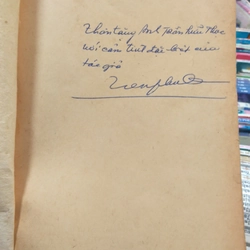 Thân tặng Anh Trần Hữu Thạc
với cảm tình đặc biệt của
tác giả